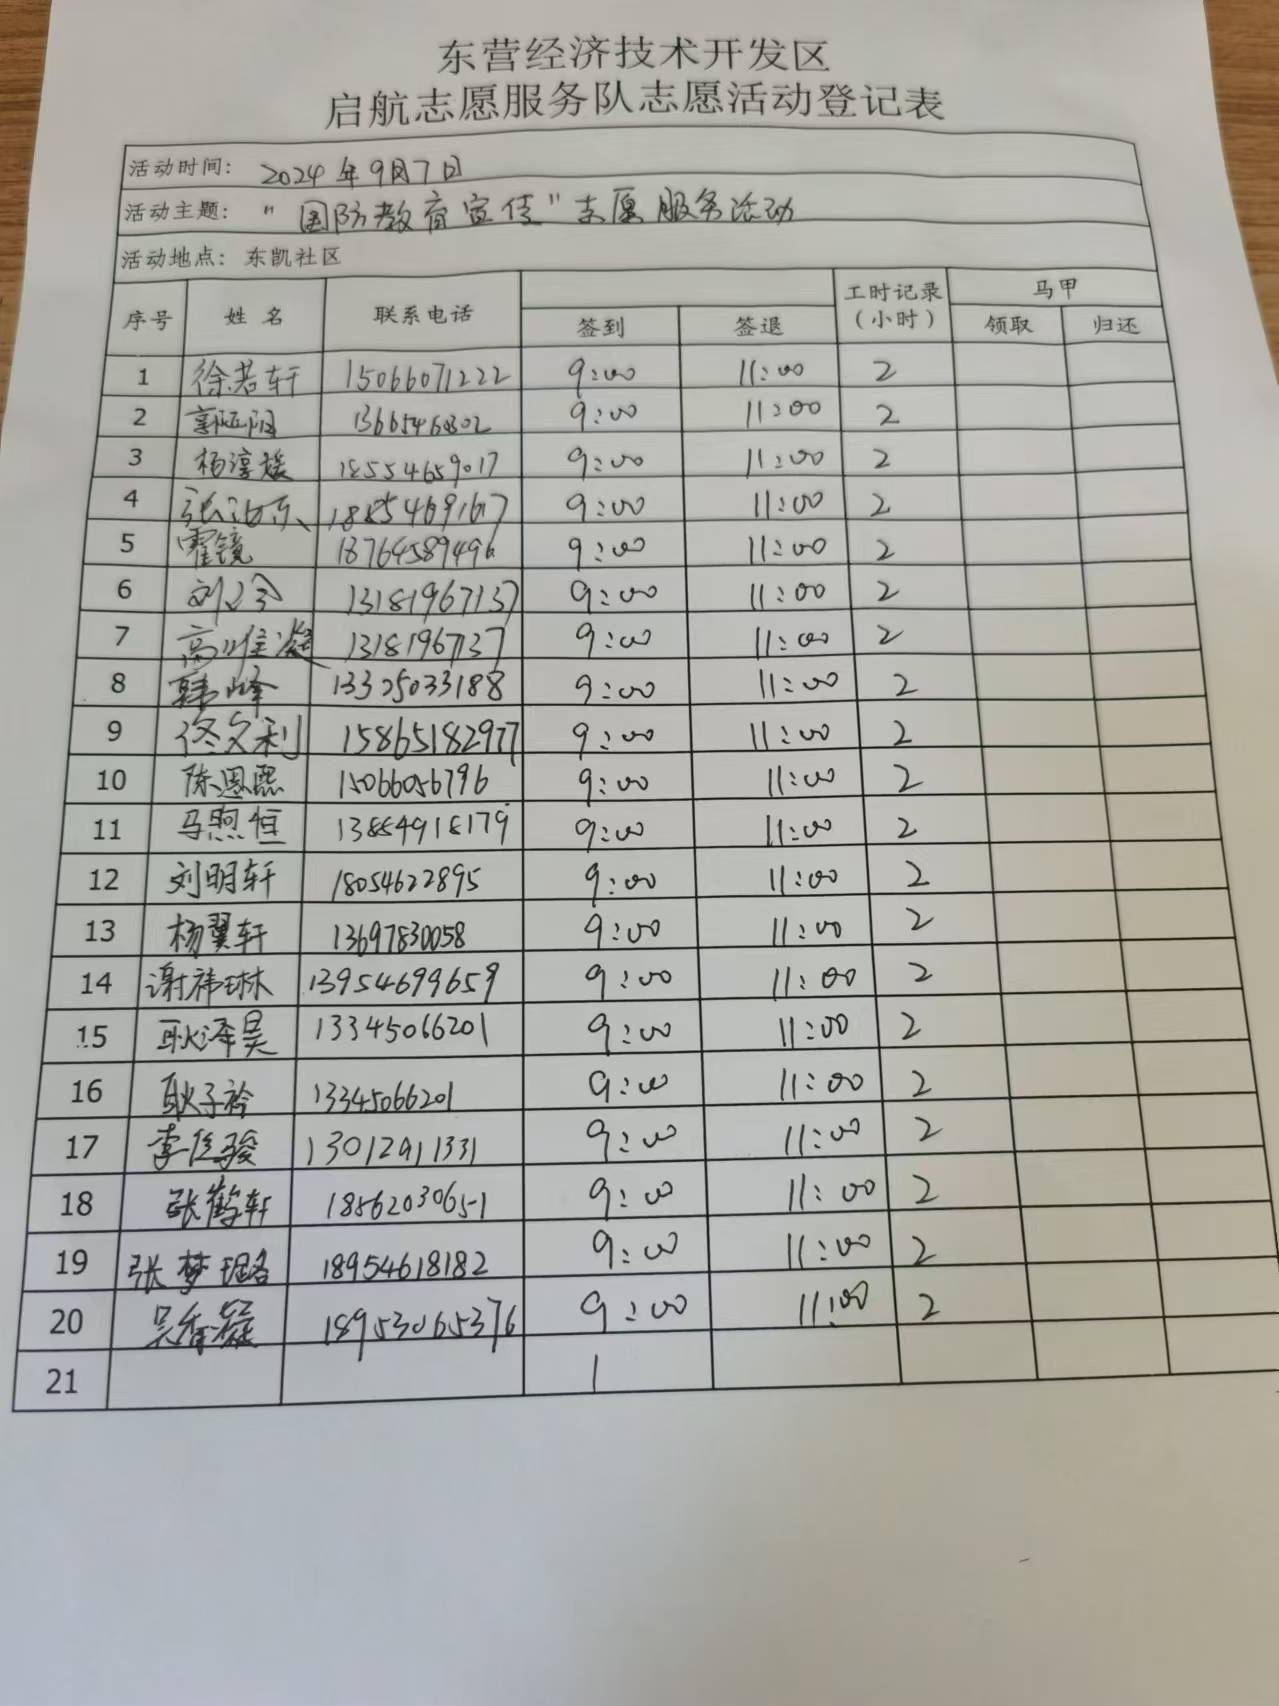 东营经济技术开发区
启航志愿服务队志愿活动登记表
活动时间： 2024年9月7日
活动主题： "国防教育宣传"志愿服务活动
活动地点： 东凯社区
序号 姓名 联系电话 签到 签退 工时记录（小时） 马甲 领取 归还
1 徐若轩 15066071222 9:00 11:00 2
2 13665460302 9:00 11:00 2
3 杨淳媛 18554659017 9:00 11:00 2
4 18854691617 9:00 11:00 2
5 霍镜 18764589496 9:00 11:00 2
6 13181967137 9:00 11:00 2
7 高唯凝 13181967137 9:00 11:00 2
8 韩峰 13325033188 9:00 11:00 2
9 佟文利 15865182977 9:00 11:00 2
10 陈恩熙 15066056796 9:00 11:00 2
11 马煦恒 13854918179 9:00 11:00 2
12 刘明轩 18054622895 9:00 11:00 2
13 杨翼轩 13697830058 9:00 11:00 2
14 谢祎琳 13954699659 9:00 11:00 2
15 耿泽昊 13345066201 9:00 11:00 2
16 耿子衿 13345066201 9:00 11:00 2
17 李俊骏 13012911331 9:00 11:00 2
18 张鹤轩 18562030651 9:00 11:00 2
19 张梦璐 18954618182 9:00 11:00 2
20 吴香凝 18953065376 9:00 11:00 2
21